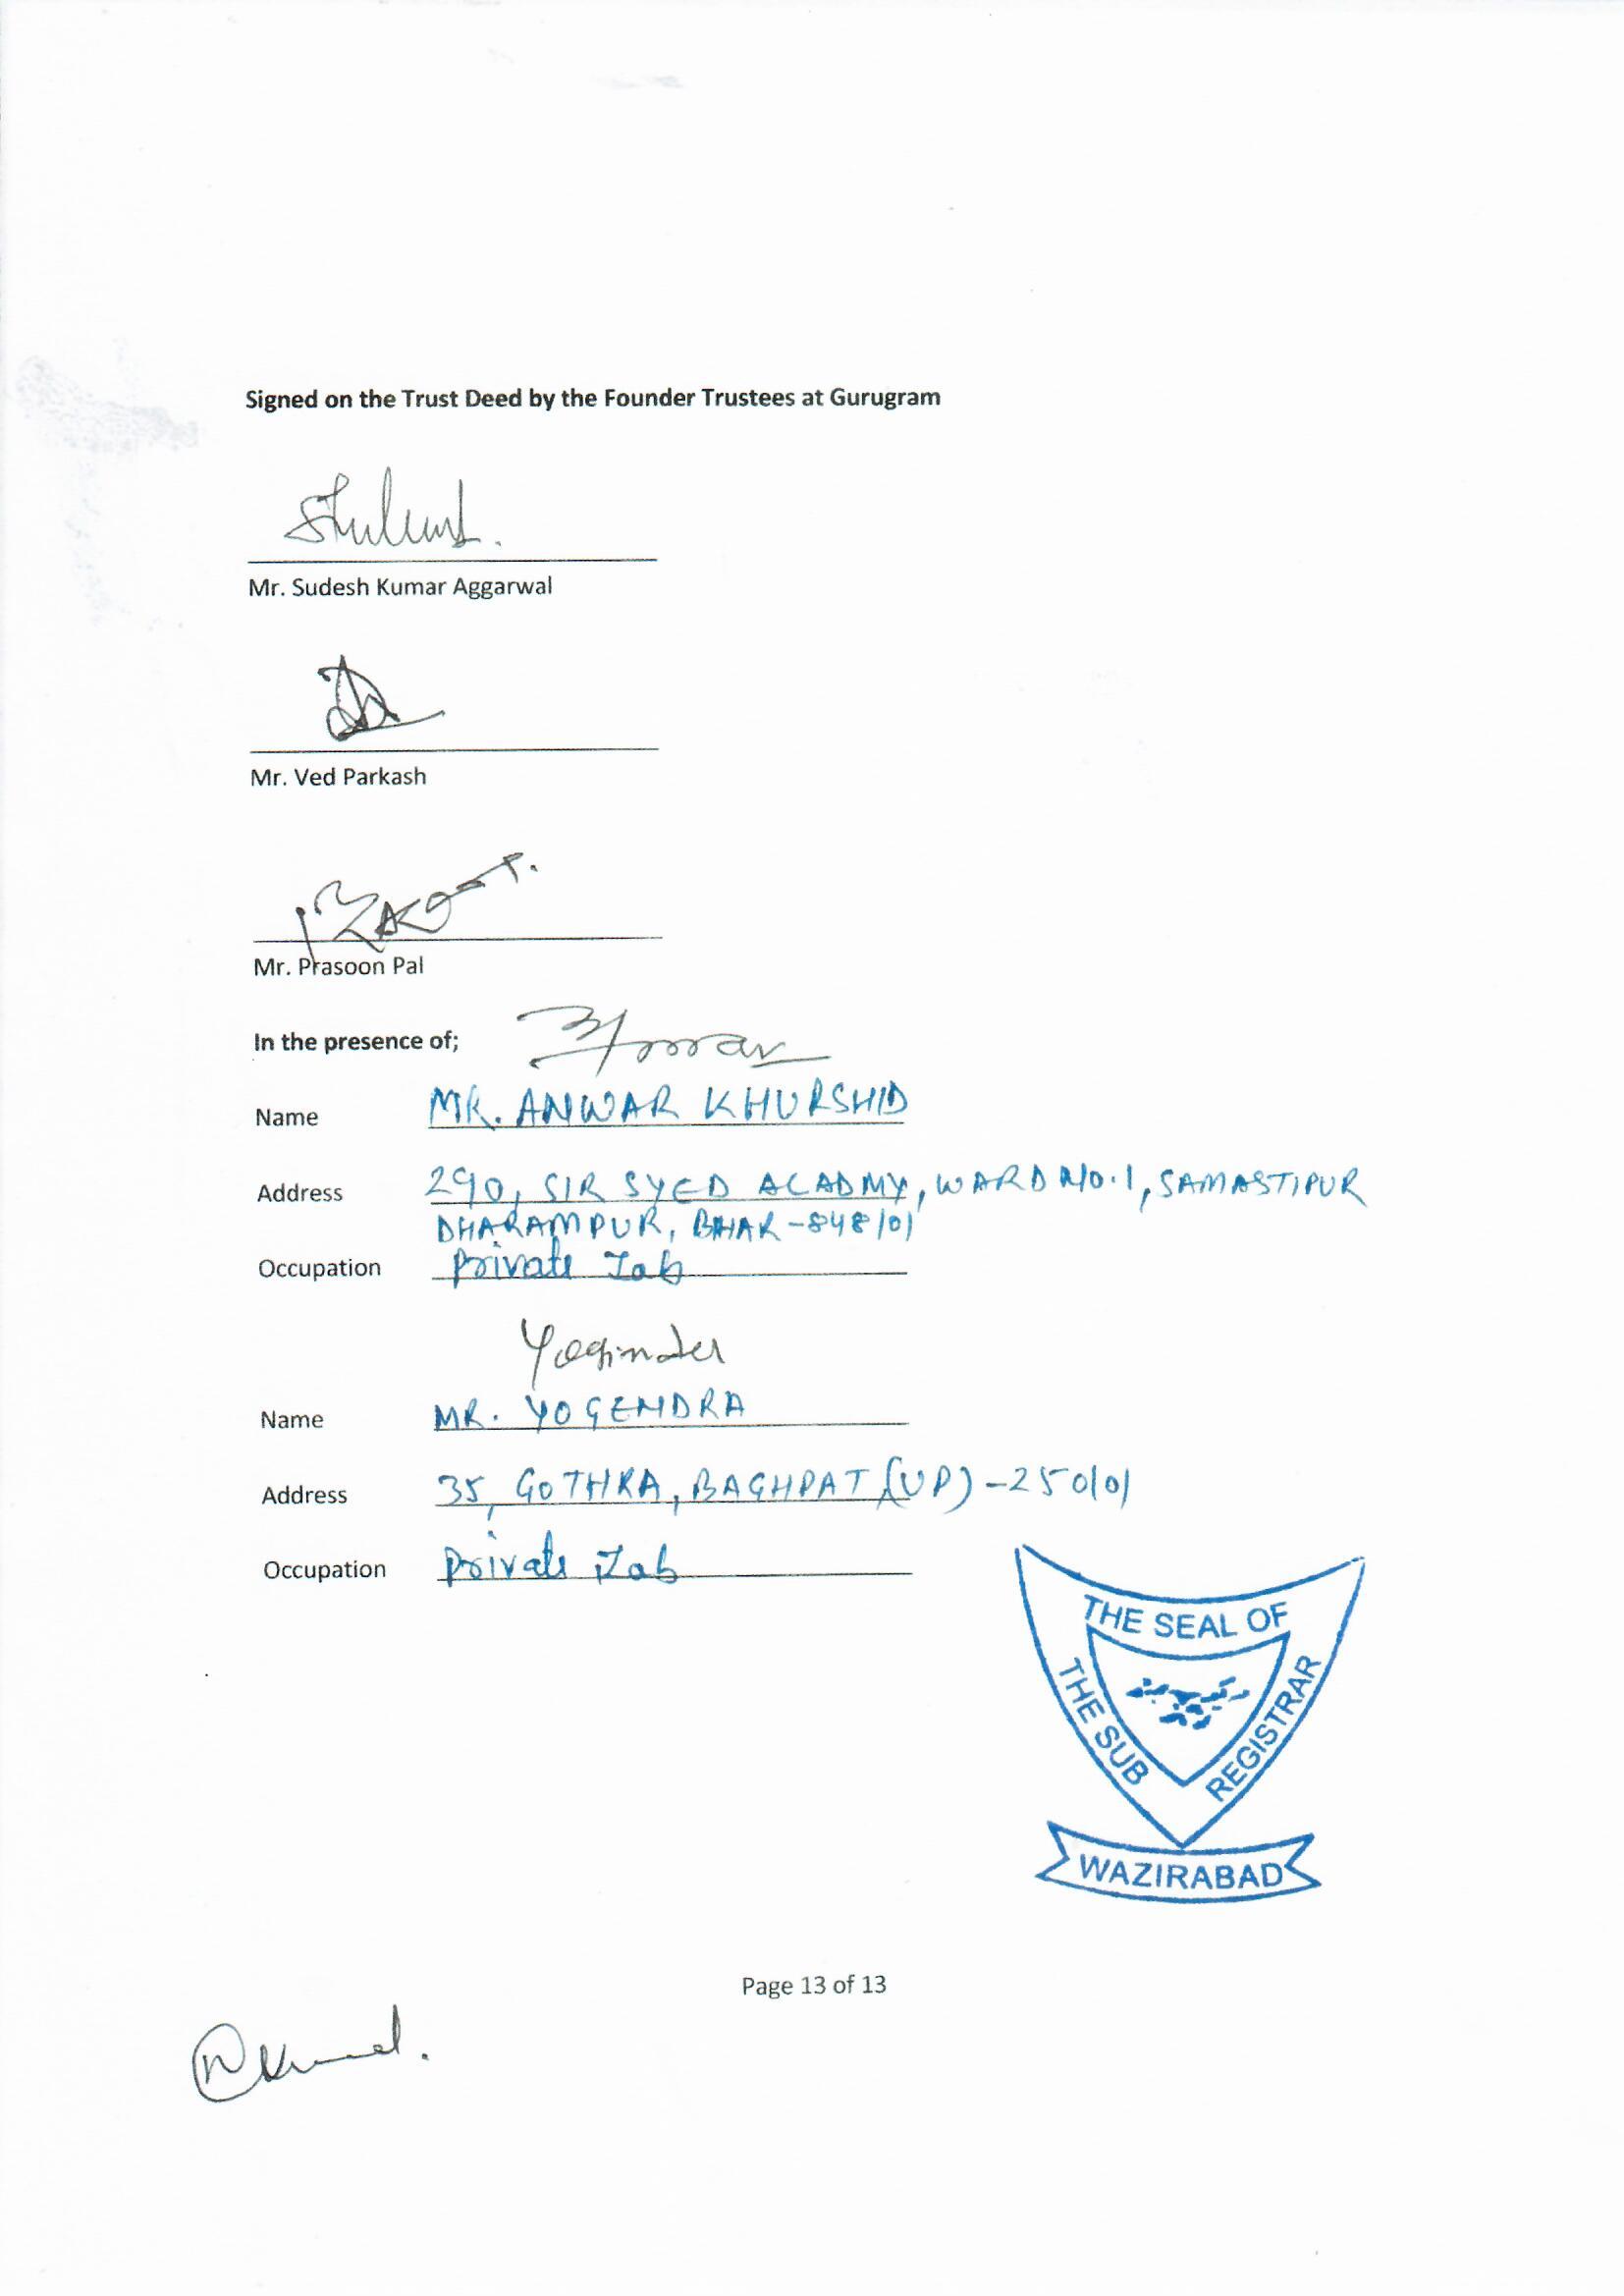 Signed on the Trust Deed by the Founder Trustees at Gurugram
Mr. Sudesh Kumar Aggarwal
Mr. Ved Parkash
Mr. Prasoon Pal
In the presence of;
Name MR. ANWAR KHURSHID
Address 290, SIR SYED ACADMY, WARD NO.1, SAMASTIPUR
DHARAMPUR, BIHAR-848101
Occupation Private Job
Yoginder
Name MR. YOGENDRA
Address 35, GOTHRA, BAGHPAT (UP)-250101
Occupation Private Job
THE SEAL OF
THE SUB REGISTRAR
WAZIRABAD
Page 13 of 13